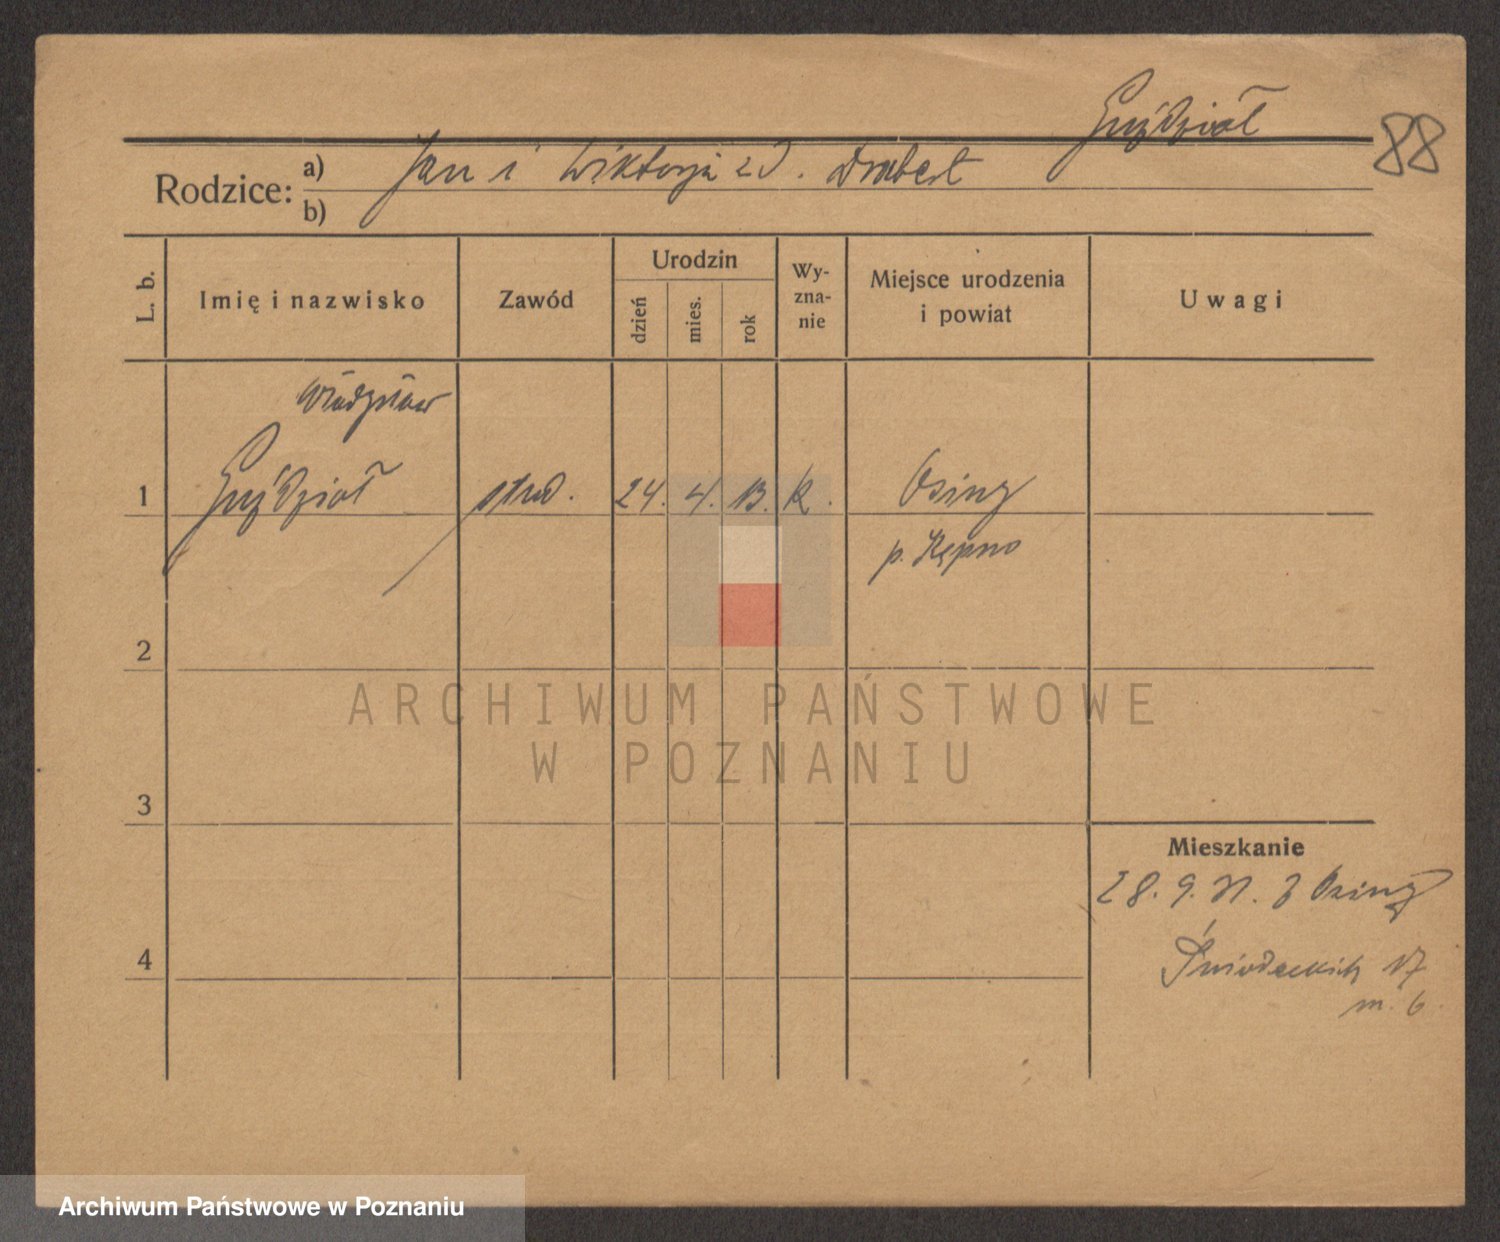 Guździoł
88
Rodzice:
a) Jan i Wiktorja z d. Drabert
b)
L. b.
Imię i nazwisko
Zawód
Urodzin
dzień
mies.
rok
Wy-
zna-
nie
Miejsce urodzenia
i powiat
Uwagi
Władysław
1 Guździoł stud. 24. 4. 13. k. Osiny
p. Kępno
2
3
4
Mieszkanie
28. 9. 31. z Osiny
Śniadeckich 17
m. 6.
ARCHIWUM PAŃSTWOWE
W POZNANIU
Archiwum Państwowe w Poznaniu